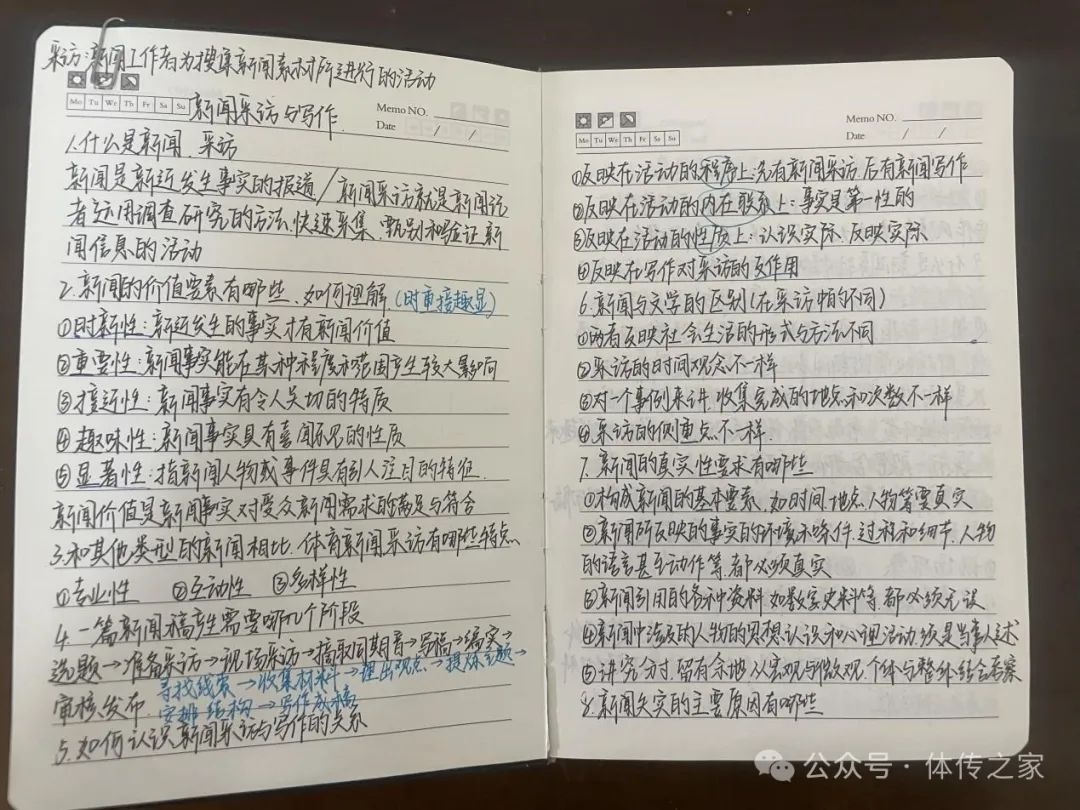 采访:新闻工作者为搜集新闻素材所进行的活动
Mo Tu We Th Fr Sa Su
新闻采访与写作.
Memo NO.
Date / /
1.什么是新闻、采访
新闻是新近发生事实的报道/新闻采访就是新闻记
者运用调查研究的方法,快速采集、甄别和验证新
闻信息的活动
2.新闻的价值要素有哪些、如何理解(时重接趣显)
①时新性:新近发生的事实才有新闻价值
②重要性:新闻事实能在某种程度和范围产生较大影响
③接近性:新闻事实有令人关切的特质
④趣味性:新闻事实具有喜闻乐见的性质
⑤显著性:指新闻人物或事件具有引人注目的特征
新闻价值是新闻事实对受众新闻需求的满足与符合
3.和其他类型的新闻相比,体育新闻采访有哪些特点
①专业性 ②互动性 ③多样性
4.一篇新闻稿产生需要哪几个阶段
选题→准备采访→现场采访→摘取同期音→写稿→编实→
寻找线索→收集材料→理出观点→提炼主题→
审核发布.
安排结构→写作成稿
5.如何认识新闻采访与写作的关系
Mo Tu We Th Fr Sa Su
Memo NO.
Date / /
①反映在活动的程序上:先有新闻采访 后有新闻写作
②反映在活动的内在联系上:事实是第一性的
③反映在活动的性质上:认识实际、反映实际
④反映在写作对采访的反作用
6.新闻与文学的区别(在采访中的不同)
①两者反映社会生活的形式与方法不同
②采访的时间观念不一样
③对一个事例来讲,收集完成的地点和次数不一样
④采访的侧重点不一样.
7.新闻的真实性要求有哪些
①构成新闻的基本要素,如时间、地点、人物等要真实
②新闻所反映的事实的环境和条件、过程和细节、人物
的语言甚至动作等,都必须真实
③新闻引用的各种资料 如数字史料等,都必须无误
④新闻中涉及的人物的思想认识和心理活动须是当事人述
⑤讲究分寸,留有余地 从宏观与微观、个体与整体结合考察
8.新闻失实的主要原因有哪些
公众号·体传之家